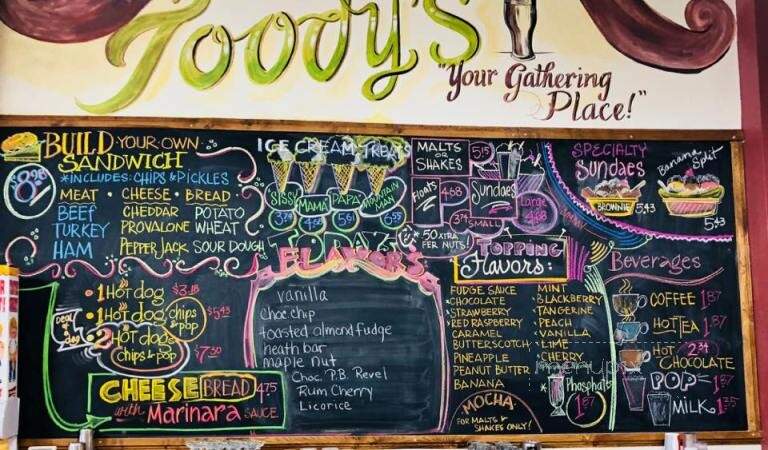 Toody's
"Your Gathering
Place!"
BUILD YOUR OWN
SANDWICH
*INCLUDES: CHIPS & PICKLES
MEAT • CHEESE • BREAD
BEEF CHEDDAR POTATO
TURKEY PROVALONE WHEAT
HAM PEPPER JACK SOUR DOUGH
• 1 HOT dog $3.18
• 1 HOT dog chips & pop $5.43
• 2 HOT dogs chips & pop $7.30
CHEESE BREAD 4.75
with Marinara SAUCE
ICE CREAM TREATS
SISSY MAMA PAPA MOUNTAIN MAN
5.61 6.55
TODAY'S
FLAVORS
vanilla
choc chip
toasted almond fudge
heath bar
maple nut
Choc. P.B. Revel
Rum Cherry
Licorice
MALTS OR SHAKES 5.15
Floats 4.68
Sundaes
3.74 SMALL
Large 4.68
* 50¢ XTRA
FER NUTS!
TOPPING
Flavors:
FUDGE SAUCE
• CHOCOLATE
*STRAWBERRY
*RED RASPBERRY
CARAMEL
BUTTERSCOTCH
PINEAPPLE
PEANUT BUTTER
BANANA
MINT
• BLACKBERRY
• TANGERINE
• PEACH
• VANILLA
• LIME
• CHERRY
* Phosphate
1.87
MOCHA
FOR MALTS &
SHAKES ONLY!
SPECIALTY
Sundaes
BROWNIE 5.43
Banana Split
5.43
Beverages
COFFEE 1.87
HOT TEA 1.87
HOT 2.34
CHOCOLATE
POP 1.87
MILK 1.35
menupix